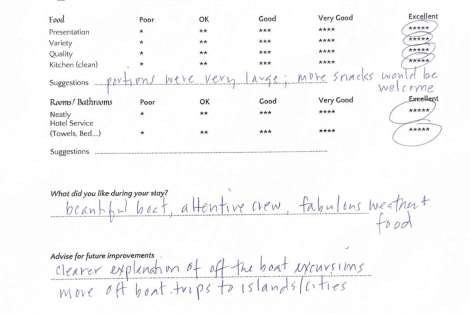 Food Poor OK Good Very Good Excellent
Presentation * ** *** **** *****
Variety * ** *** **** *****
Quality * ** *** **** *****
Kitchen (clean) * ** *** **** *****
Suggestions portions were very large; more snacks would be
welcome
Rooms/ Bathrooms Poor OK Good Very Good Excellent
Neatly * ** *** **** *****
Hotel Service
(Towels, Bed....) * ** *** **** *****
Suggestions
What did you like during your stay?
beautiful boat, attentive crew, fabulous weather +
food
Advise for future improvements
clearer explanation of off the boat excursions
more off boat trips to islands/cities